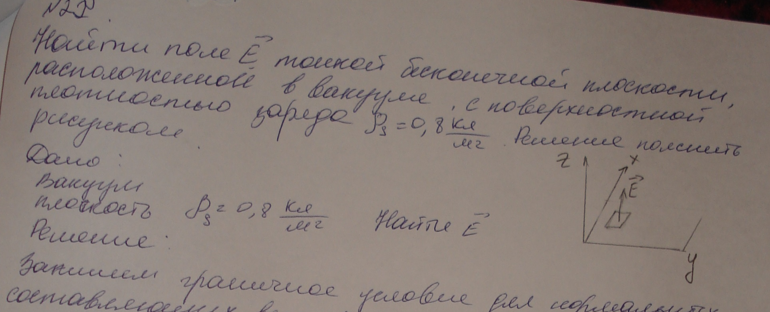 N22.
Найти поле E тонкой бесконечной плоскости,
расположенной в вакууме, с поверхностной
плотностью заряда ρз = 0,8 кл/м2. Решение пояснить
рисунком.
Дано:
Вакуум
плоскость ρз = 0,8 кл/м2 Найти E
z x E y
Решение:
Запишем граничное условие для нормальных
составляющих